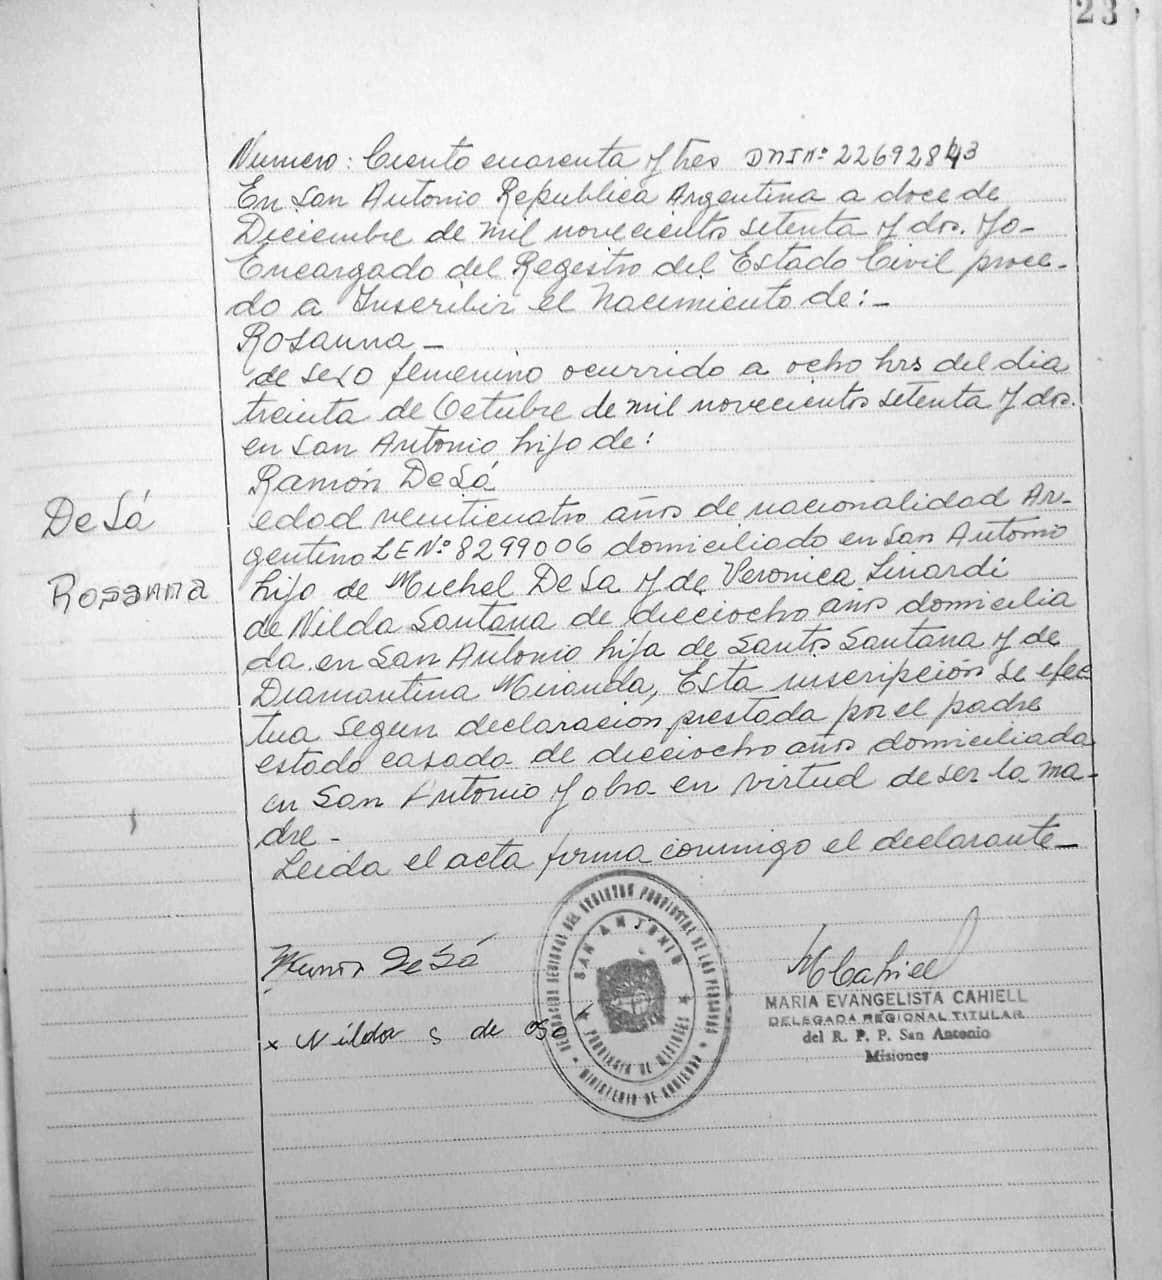 23
Numero: Ciento cuarenta y tres DNI Nº 22692843
En San Antonio Republica Argentina a doce de
Diciembre de mil novecientos setenta y dos. Yo-
Encargado del Registro del Estado Civil proce-
do a Inscribir el nacimiento de:-
Rosanna-
de sexo femenino ocurrido a ocho hrs del dia
treinta de Octubre de mil novecientos setenta y dos.
en San Antonio hijo de:
Ramón De Sá
De Sá
edad veinticuatro años de nacionalidad Ar-
gentina L E Nº 8299006 domiciliado en San Antonio
Rosanna
hijo de Michel De Sa y de Veronica Linardi
de Nilda Santana de dieciocho años domicilia
da en San Antonio hija de Santos Santana y de
Diamantina Miranda, Esta inscripcion se efec
tua segun declaracion prestada por el padre
estado casada de dieciocho años domiciliada
en San Antonio y obra en virtud de ser la ma-
dre-
Leida el acta firma conmigo el declarante-
De Sá
x Nilda S de
DELEGACION REGIONAL DEL REGISTRO PROVINCIAL DE LAS PERSONAS
SAN ANTONIO
PROVINCIA DE MISIONES
MINISTERIO DE GOBIERNO
MCahiell
MARIA EVANGELISTA CAHIELL
DELEGADA REGIONAL TITULAR
del R. P. P. San Antonio
Misiones